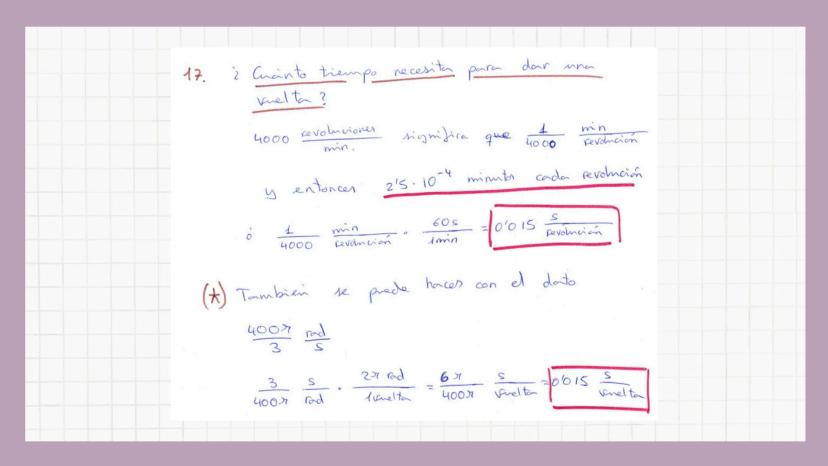 17. ¿ Cuánto tiempo necesita para dar una
vuelta?
4000 revoluciones/min. significa que 1/4000 min/revolución
y entonces 2'5·10⁻⁴ minutos cada revolución
ó 1/4000 min/revolución · 60s/1min = 0'015 s/revolución
(*) También se puede hacer con el dato
400π/3 rad/s
3/400π s/rad · 2π rad/1vuelta = 6π/400π s/vuelta = 0'015 s/vuelta